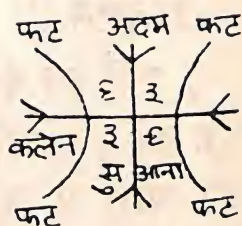 फट अदम फट
६ ३
कलेन ३ ६
सु आना
फट फट